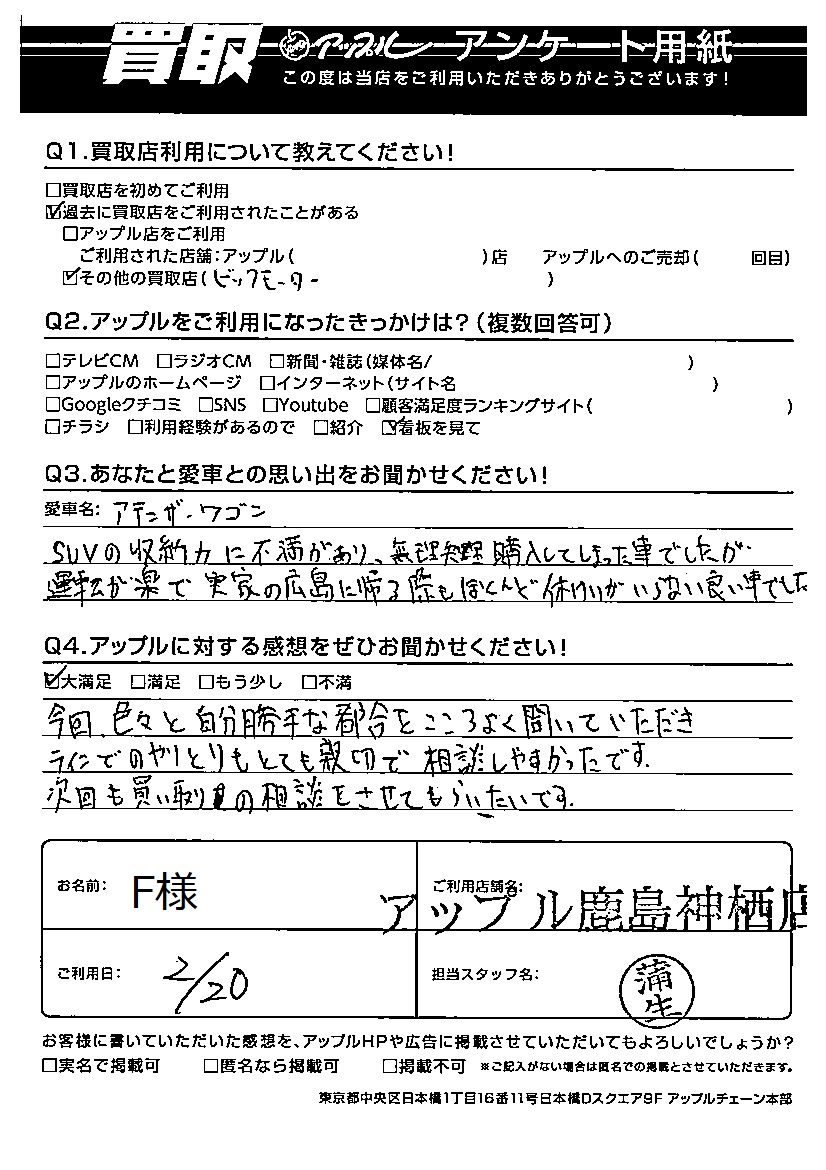 買取 アップル アンケート用紙
この度は当店をご利用いただきありがとうございます!
Q1.買取店利用について教えてください!
□買取店を初めてご利用
☑過去に買取店をご利用されたことがある
□アップル店をご利用
ご利用された店舗:アップル( )店 アップルへのご売却( 回目)
☑その他の買取店(ビッグモーター )
Q2.アップルをご利用になったきっかけは?(複数回答可)
□テレビCM □ラジオCM □新聞・雑誌(媒体名/ )
□アップルのホームページ □インターネット(サイト名 )
□Googleクチコミ □SNS □Youtube □顧客満足度ランキングサイト( )
□チラシ □利用経験があるので □紹介 ☑看板を見て
Q3.あなたと愛車との思い出をお聞かせください!
愛車名: アテンザ・ワゴン
SUVの収納力に不満があり、無理矢理購入してしまった車でしたが
運転が楽で実家の広島に帰る際もほとんど休けいがいらない良い車でした
Q4.アップルに対する感想をぜひお聞かせください!
☑大満足 □満足 □もう少し □不満
今回、色々と自分勝手な都合をこころよく聞いていただき
ラインでのやりとりもとても親切で相談しやすかったです.
次回も買い取りの相談をさせてもらいたいです.
お名前: F様 ご利用店舗名: アップル鹿島神栖店
ご利用日: 2/20 担当スタッフ名: 蒲生
お客様に書いていただいた感想を、アップルHPや広告に掲載させていただいてもよろしいでしょうか?
□実名で掲載可 □匿名なら掲載可 □掲載不可 ※ご記入がない場合は匿名での掲載とさせていただきます。
東京都中央区日本橋1丁目16番11号日本橋Dスクエア9F アップルチェーン本部